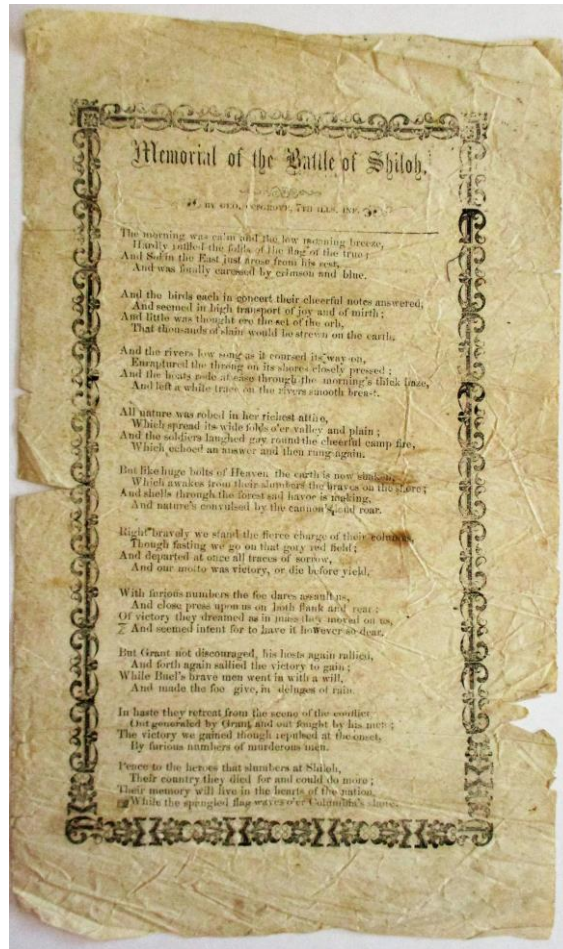 Memorial of the Battle of Shiloh.
BY GEO. 7TH ILLS. INF.
The morning was calm and the low morning breeze,
Hardly ruffled the folds of the flag of the true;
And Sol in the East just arose from his rest,
And was fondly caressed by crimson and blue.
And the birds each in concert their cheerful notes answered;
And seemed in high transport of joy and of mirth;
And little was thought ere the set of the orb,
That thousands of slain would be strewn on the earth.
And the rivers low song as it coursed its way on,
Enraptured the throng on its shores closely pressed;
And the boats rode at ease through the morning's thick haze,
And left a white trace on the rivers smooth breast.
All nature was robed in her richest attire,
Which spread its wide folds o'er valley and plain;
And the soldiers laughed gay round the cheerful camp fire,
Which echoed an answer and then rung again.
But like huge bolts of Heaven the earth is now shaken,
Which awakes from their slumbers the braves on the shore;
And shells through the forest sad havor is making,
And nature's convulsed by the cannon's loud roar.
Right bravely we stand the fierce charge of their columns,
Though fasting we go on that gory red field;
And departed at once all traces of sorrow,
And our motto was victory, or die before yield.
With furious numbers the foe dares assault us,
And close press upon us on both flank and rear;
Of victory they dreamed as in mass they moved on us,
And seemed intent for to have it however so dear.
But Grant not discouraged, his hosts again rallied,
And forth again sallied the victory to gain;
While Buel's brave men went in with a will,
And made the foe give, in deluges of rain.
In haste they retreat from the scene of the conflict,
Out generaled by Grant and out fought by his men;
The victory we gained though repulsed at the onset,
By furious numbers of murderous men.
Peace to the heroes that slumbers at Shiloh,
Their country they died for and could do more;
Their memory will live in the hearts of the nation,
While the spangled flag waves o'er Columbia's shore.